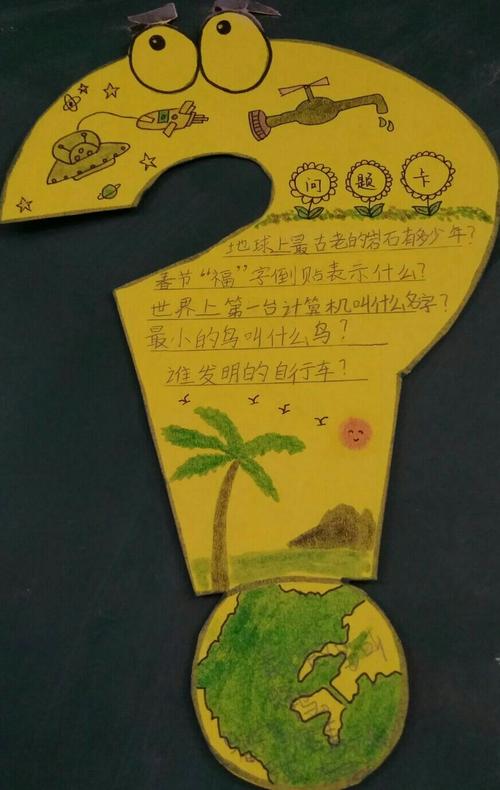 问题卡
地球上最古老的岩石有多少年?
春节“福”字倒贴表示什么?
世界上第一台计算机叫什么名字?
最小的鸟叫什么鸟?
谁发明的自行车?